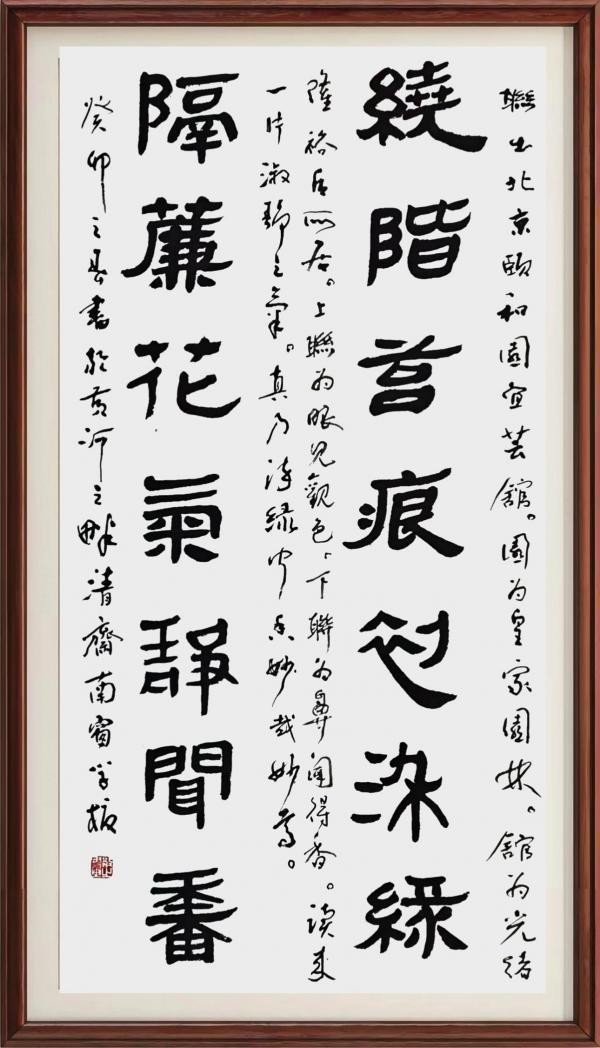 聯出北京頤和園宜芸館。園為皇家園林。館為光緒
繞階苔痕初染綠
隆裕后所居。上聯為眼見觀色，下聯為鼻聞得香。讀来
一片淑靜之氣。真乃妙哉妙焉。
隔簾花氣靜聞香
癸卯之春書於黃河之畔清齋南窗